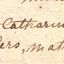 Catharin
ers, Mat